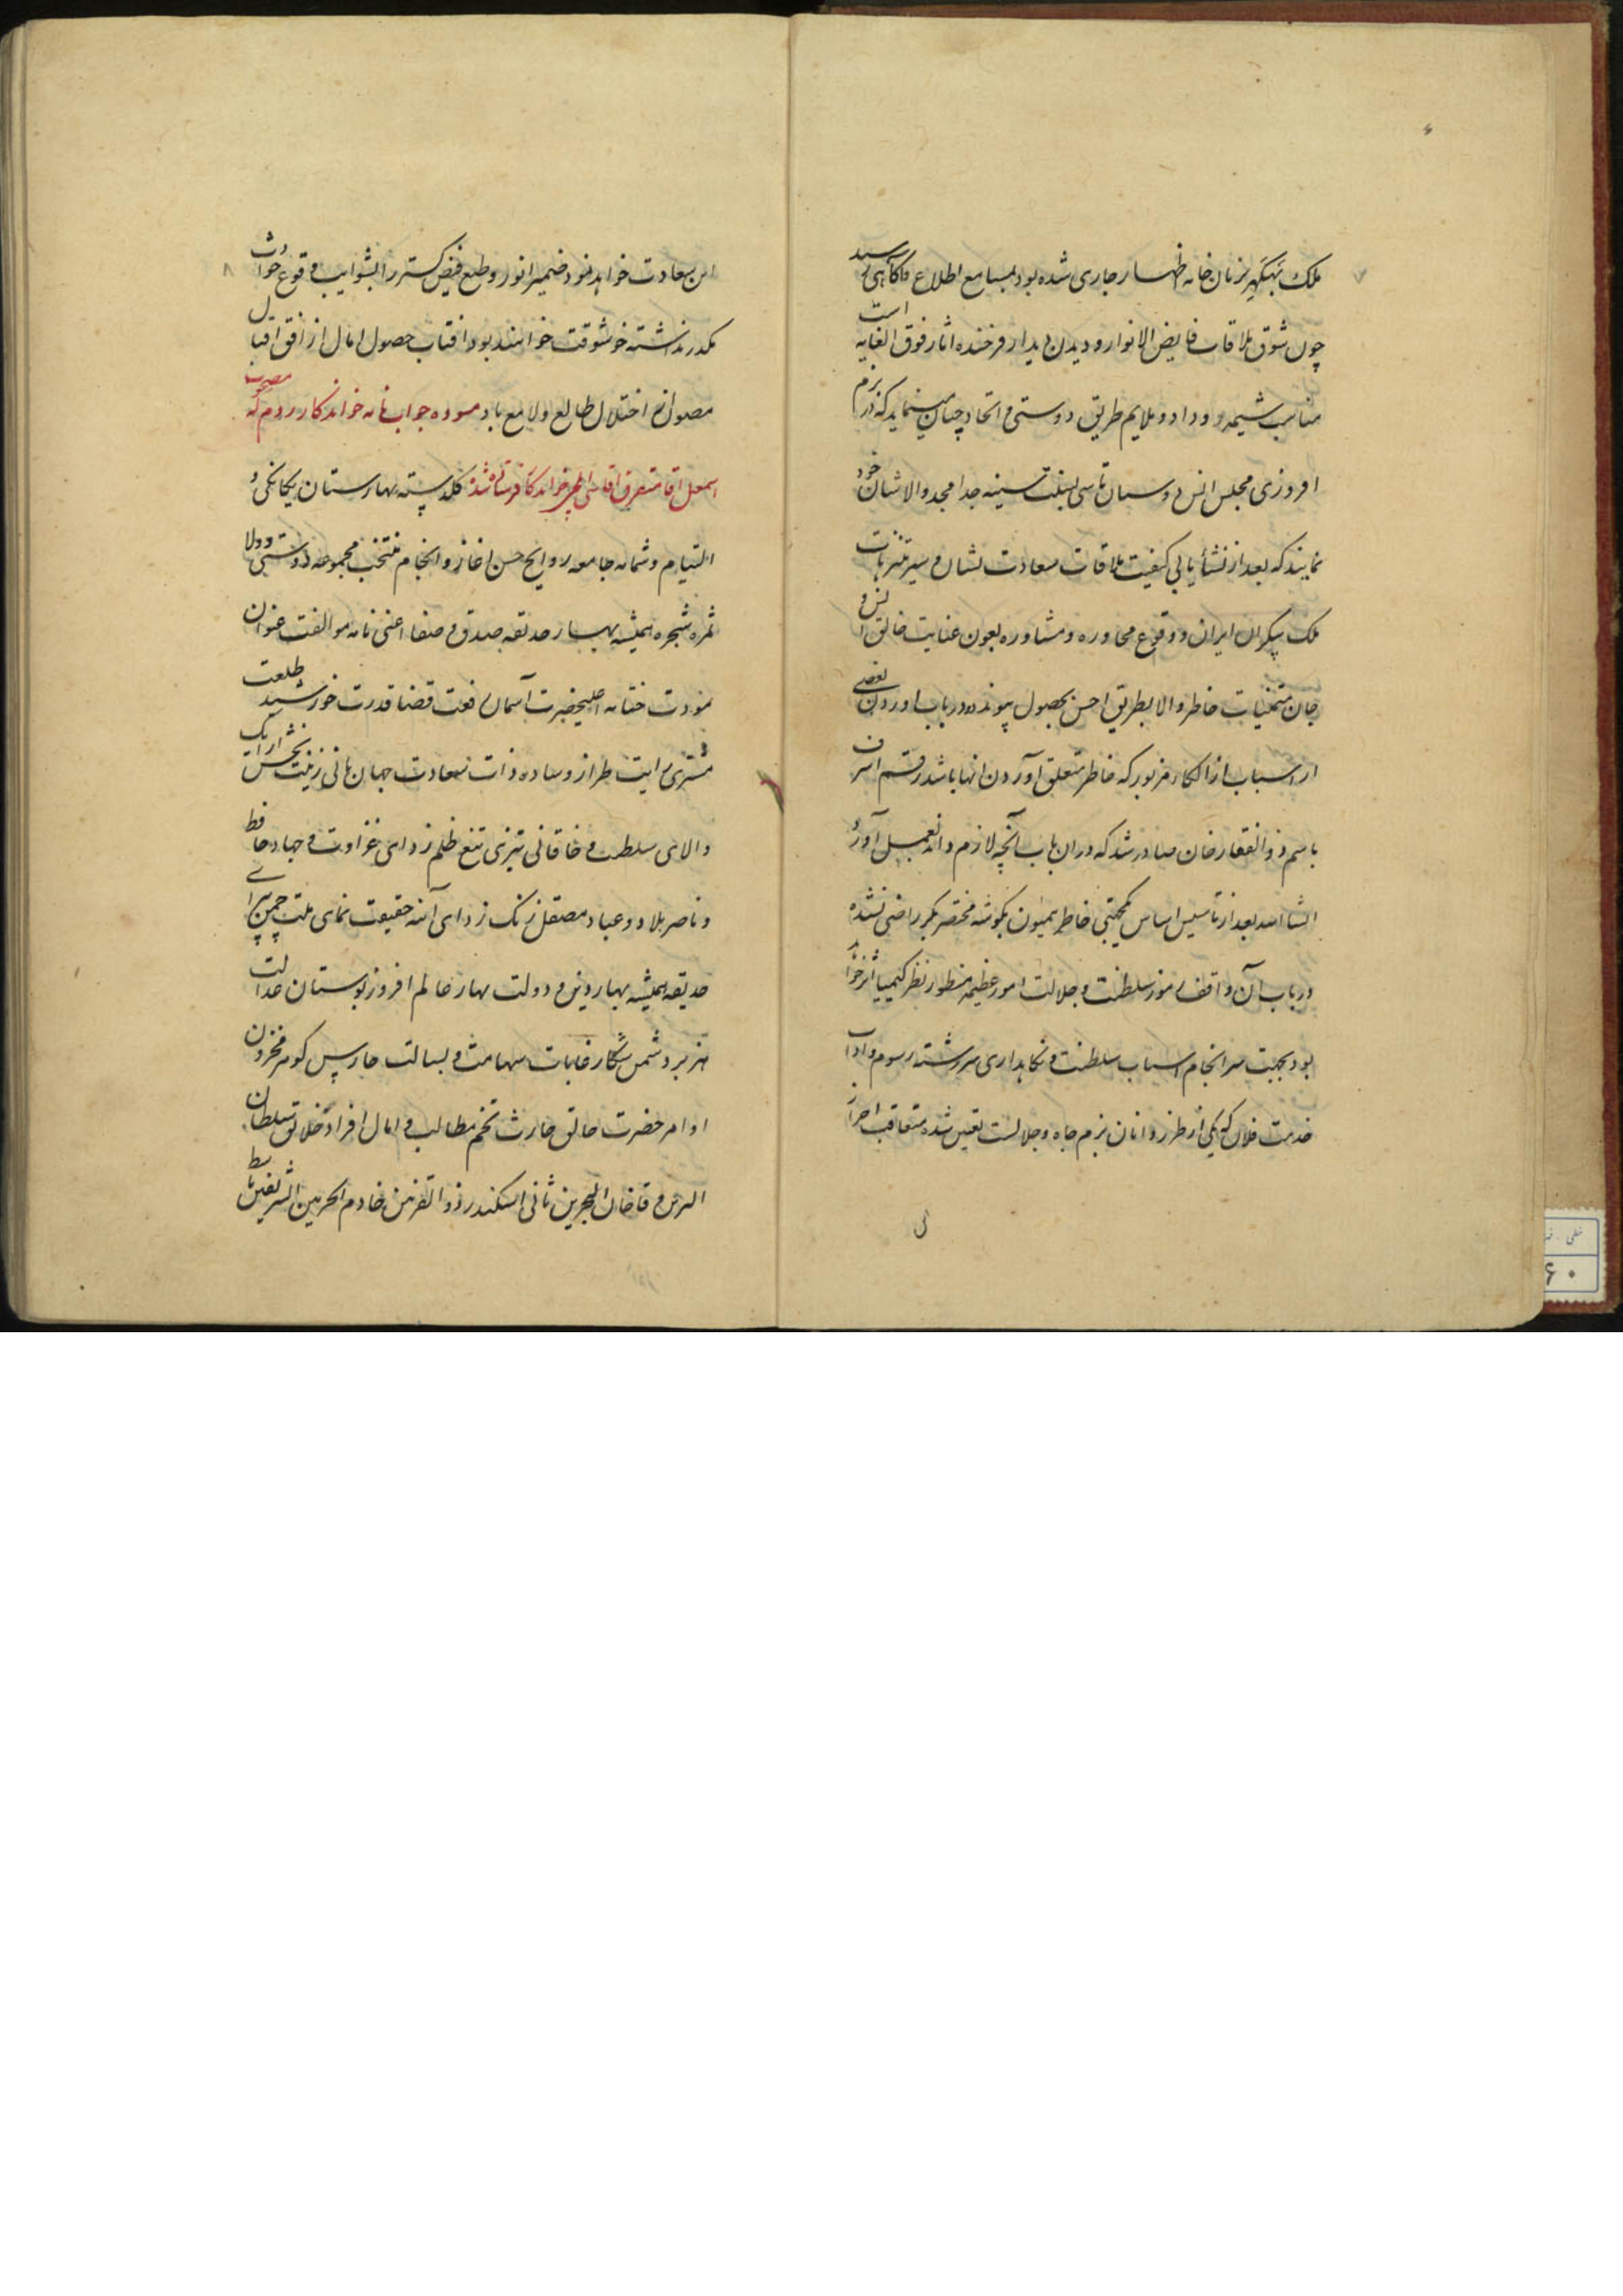 ۷
ملک بزبان خامه اظهار جاری شده بود بمسامع اطلاع و آگاهی رسید
چون شوق ملاقات فایض الانوار و دیدن دیدار فرخنده اثار فوق الغایه است
مناسب شیمه وداد و ملایم طریق دوستی و اتحاد چنان مینماید که در بزم
افروزی مجلس انس دوستان تاسی بسنت سنیه جد امجد والاشان خود
نمایند که بعد از نشأیابی کیفیت ملاقات سعادت نشان و سیر متنزهات
ملک پیکران ایران و وقوع محاوره و مشاوره بعون عنایت خالق انس و
جان متمنیات خاطر والا بطریق احسن بحصول پیوندد و در باب اوردن بعضی
از اسباب از الکاء مزبور که خاطر متعلق آوردن انها باشد رقم اشرف
باسم ذوالفقار خان صادر شد که دران باب آنچه لازم داند بعمل آورد
انشاالله بعد از تاسیس اساس یکجهتی خاطر همیون بگوشه مختصر یکبر راضی نشده
در باب آن واقف رموز سلطنت و جلالت امور عظیمه منظور نظر کیمیا اثر خواهد
بود بجهت سرانجام اسباب سلطنت و نگاهداری سررشته رسوم و اداب
خدمت فلان که یکی از طرز دانان بزم جاه و جلالست تعیین شده متعاقب احراز
۸
این سعادت خواهد نمود ضمیر انور و طبع فیض گستر را بشوایب وقوع حوادث
مکدر نداشته خوشوقت خواهند بود افتاب حصول امال از افق اقبال
مصون از اختلال طالع و لامع باد مسوده جواب نامه خواندکار روم که مصحوب
اسمعیل اقا متفرقه اقاسی ایلچی خواندکار فرستاده شده گلدسته بهارستان یگانگی و
التیام و شمامه جامعه روایح حسن اغاز و انجام منتخب مجموعه دوستی و ولا
ثمره شجره همیشه بهار حدیقه صدق و صفا اعنی نامه موالفت عنوان
مودت ختامه اعلیحضرت آسمان رفعت قضا قدرت خورشید طلعت
مشتری رایت طراز وساده ذات سعادت جهان بانی زینت بخش ارایک
والای سلطنت و خاقانی تیزی تیغ ظلم زدای غزاوت و جهاد حافظ
و ناصر بلاد و عباد مصقل زنگ زدای آئنه حقیقت نمای ملت چمن پیرای
حدیقه همیشه بهار دین و دولت بهار عالم افروز بوستان عدالت
هزبر دشمن شکار غابات شهامت و بسالت حارس گوهر مخزون
اوامر حضرت خالق حارث تخم مطالب و امال افراد خلائق سلطان
البرین و خاقان البحرین ثانی اسکندر ذوالقرنین خادم الحرمین الشریفین باسط